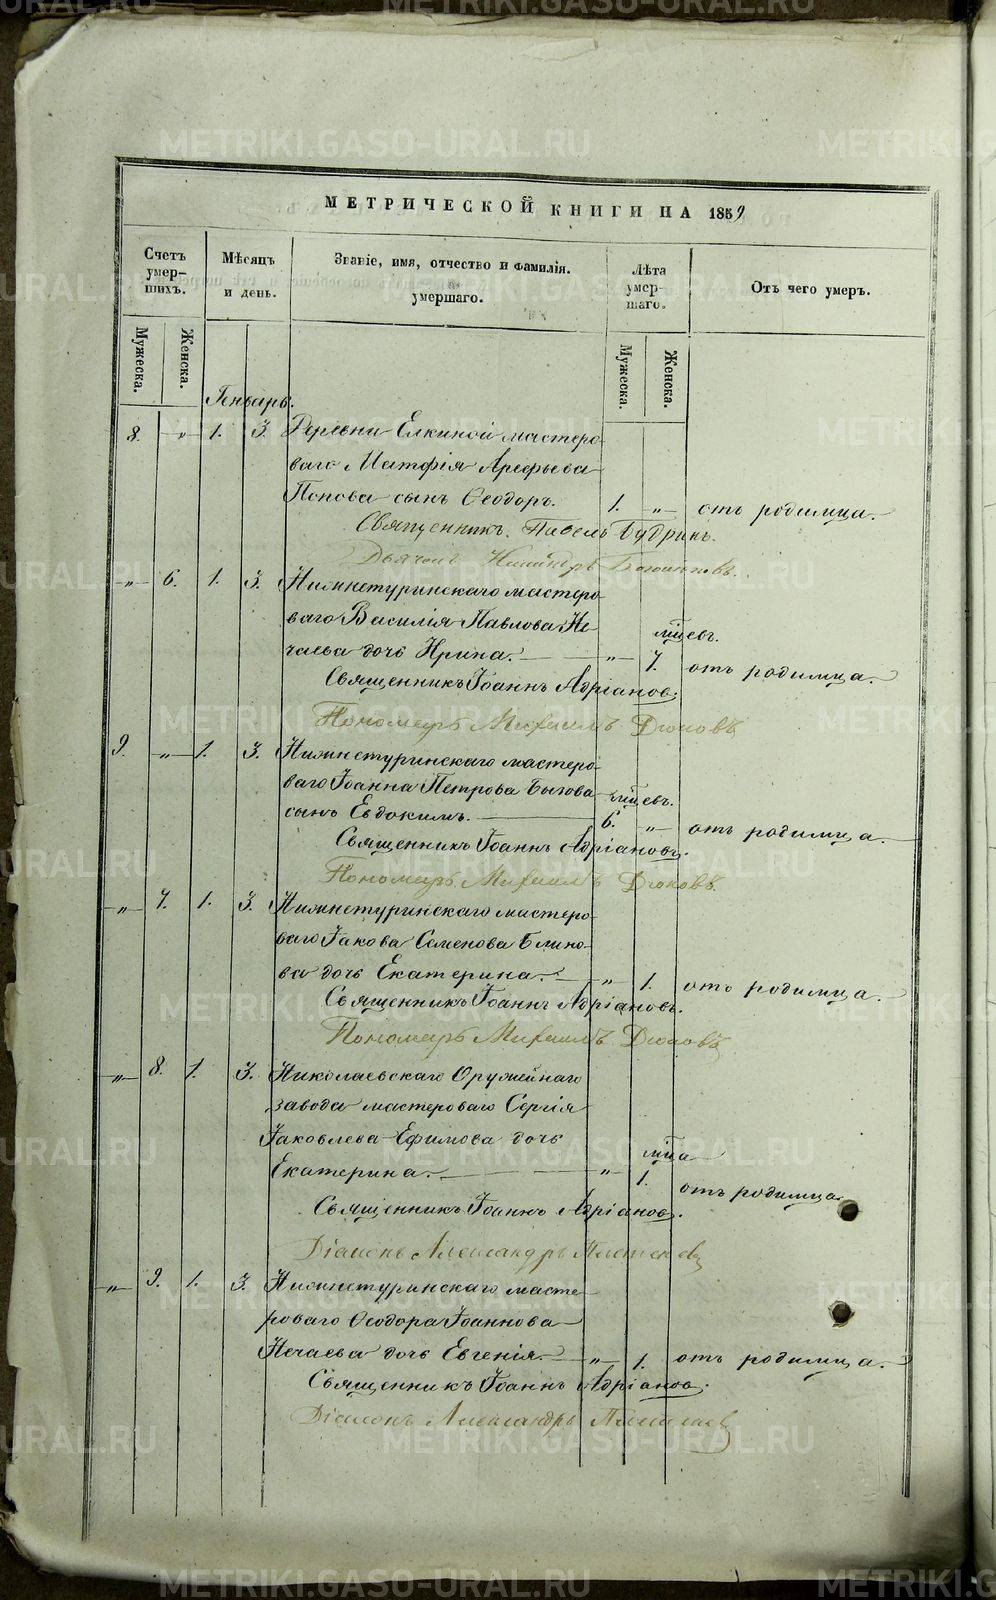 МЕТРИЧЕСКОЙ КНИГИ НА 1859
Счетъ умер-шихъ.
Мѣсяцъ и день.
Званіе, имя, отчество и фамилія умершаго.
Лѣта умер-шаго.
Отъ чего умеръ.
Мужеска.
Женска.
Мужеска.
Женска.
Генварь.
8. „ 1. 3. Деревни Елкиной мастеро-
ваго Матфія Арефьева
Попова сынъ Ѳеодоръ. 1. „ отъ родимца.
Священникъ Павелъ Будринъ.
Дьячокъ
„ 6. 1. 3. Нижнетуринскаго мастеро-
ваго Василія Павлова Не-
чаева дочь Ирина. „ 7. мцевъ. отъ родимца.
Священникъ Іоаннъ Адріановъ.
Пономарь Михаилъ Дюковъ
9. „ 1. 3. Нижнетуринскаго мастеро-
ваго Іоанна Петрова Бызова
сынъ Евдокимъ. 6. мцевъ. „ отъ родимца.
Священникъ Іоаннъ Адріановъ.
Пономарь Михаилъ Дюковъ.
„ 7. 1. 3. Нижнетуринскаго мастеро-
ваго Іакова Семенова Блино-
ва дочь Екатерина. „ 1. отъ родимца.
Священникъ Іоаннъ Адріановъ.
Пономарь Михаилъ Дюковъ
„ 8. 1. 3. Николаевскаго Оружейнаго
завода мастероваго Сергія
Іаковлева Ефимова дочь
Екатерина. „ 1. мца отъ родимца.
Священникъ Іоаннъ Адріановъ.
Діаконъ Александръ
„ 9. 1. 3. Нижнетуринскаго масте-
роваго Ѳеодора Іоаннова
Нечаева дочь Евгенія. „ 1. отъ родимца.
Священникъ Іоаннъ Адріановъ.
Діаконъ Александръ
METRIKI.GASO-URAL.RU